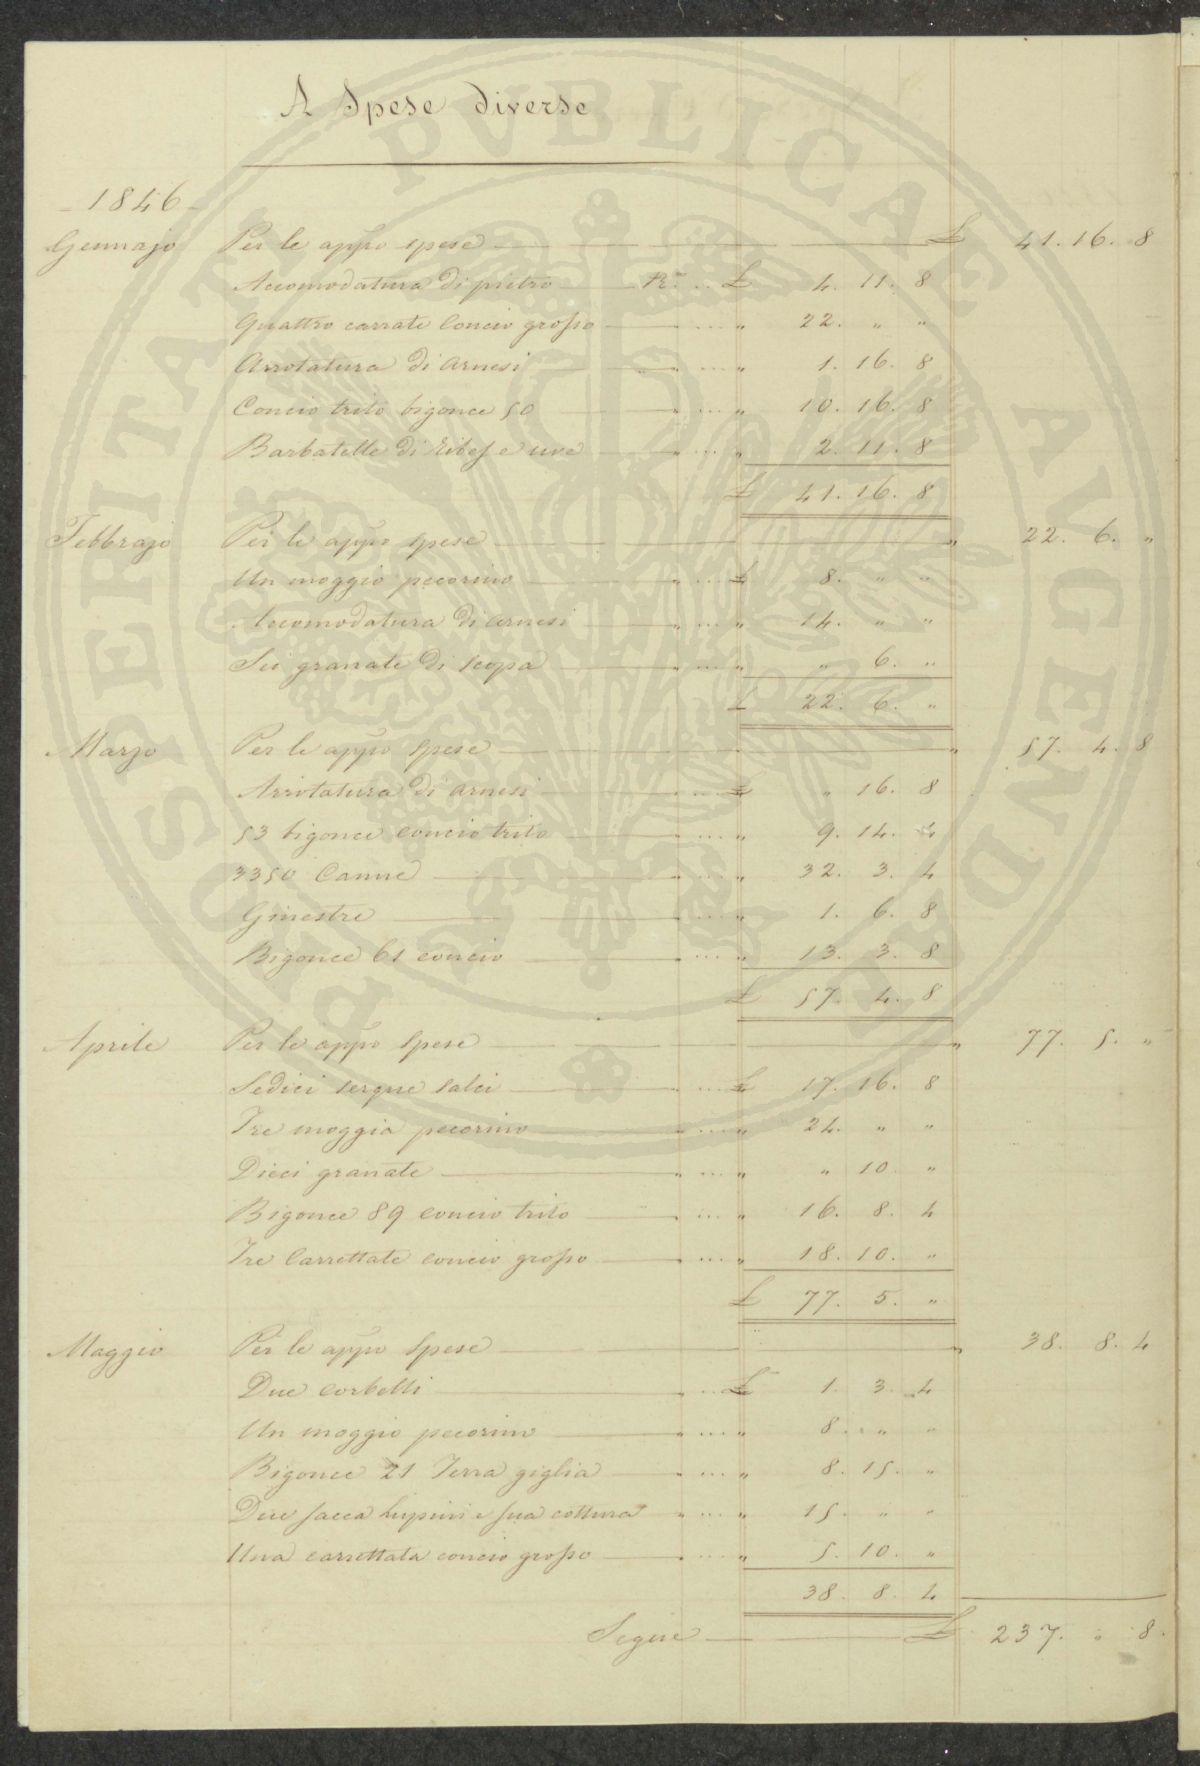 A Spese diverse
- 1846 -
Gennajo Per le appso spese £ 41. 16. 8
Accomodatura di pietro Rm ... £ 4. 11. 8
Quattro carrate Concio grosso „ ... „ 22. „ „
Arrotatura di arnesi „ ... „ 1. 16. 8
Concio trito bigonce 50 „ ... „ 10. 16. 8
Barbatelle di ribes e uve „ ... „ 2. 11. 8
£ 41. 16. 8
Febbrajo Per le appso spese „ 22. 6. „
Un moggio pecorino „ ... £ 8. „ „
Accomodatura di arnesi „ ... „ 14. „ „
Sei granate di scopa „ ... „ „ 6. „
£ 22. 6. „
Marzo Per le appso spese „ 57. 4. 8
Arrotatura di arnesi „ ... £ „ 16. 8
53 bigonce concio trito „ ... „ 9. 14. 4
3350 Canne „ ... „ 32. 3. 4
Ginestre „ ... „ 1. 6. 8
Bigonce 61 concio „ ... „ 13. 3. 8
£ 57. 4. 8
Aprile Per le appso spese „ 77. 5. „
Sedici serque salci „ ... £ 17. 16. 8
Tre moggia pecorino „ ... „ 24. „ „
Dieci granate „ ... „ „ 10 „
Bigonce 89 concio trito „ ... „ 16. 8. 4
Tre Carrettate concio grosso „ ... „ 18. 10. „
£ 77. 5. „
Maggio Per le appso spese „ 38. 8. 4
Due corbelli „ ... £ 1. 3. 4
Un moggio pecorino „ ... „ 8. „ „
Bigonce 21 Terra giglia „ ... „ 8. 15. „
Due sacca lupini e sua cottura „ ... „ 15 „ „
Una carrettata concio grosso „ ... „ 5. 10. „
38. 8. 4
Segue £ 237. „ 8.
PROSPERITATI PVBLICAE AVGENDAE